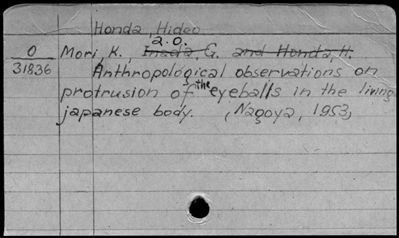 Honda, Hideo
2.0.
0 Mori, K., Inada, G. and Honda, H.
31836 Anthropological observations on
protrusion of the eyeballs in the living
japanese body. (Nagoya, 1953)